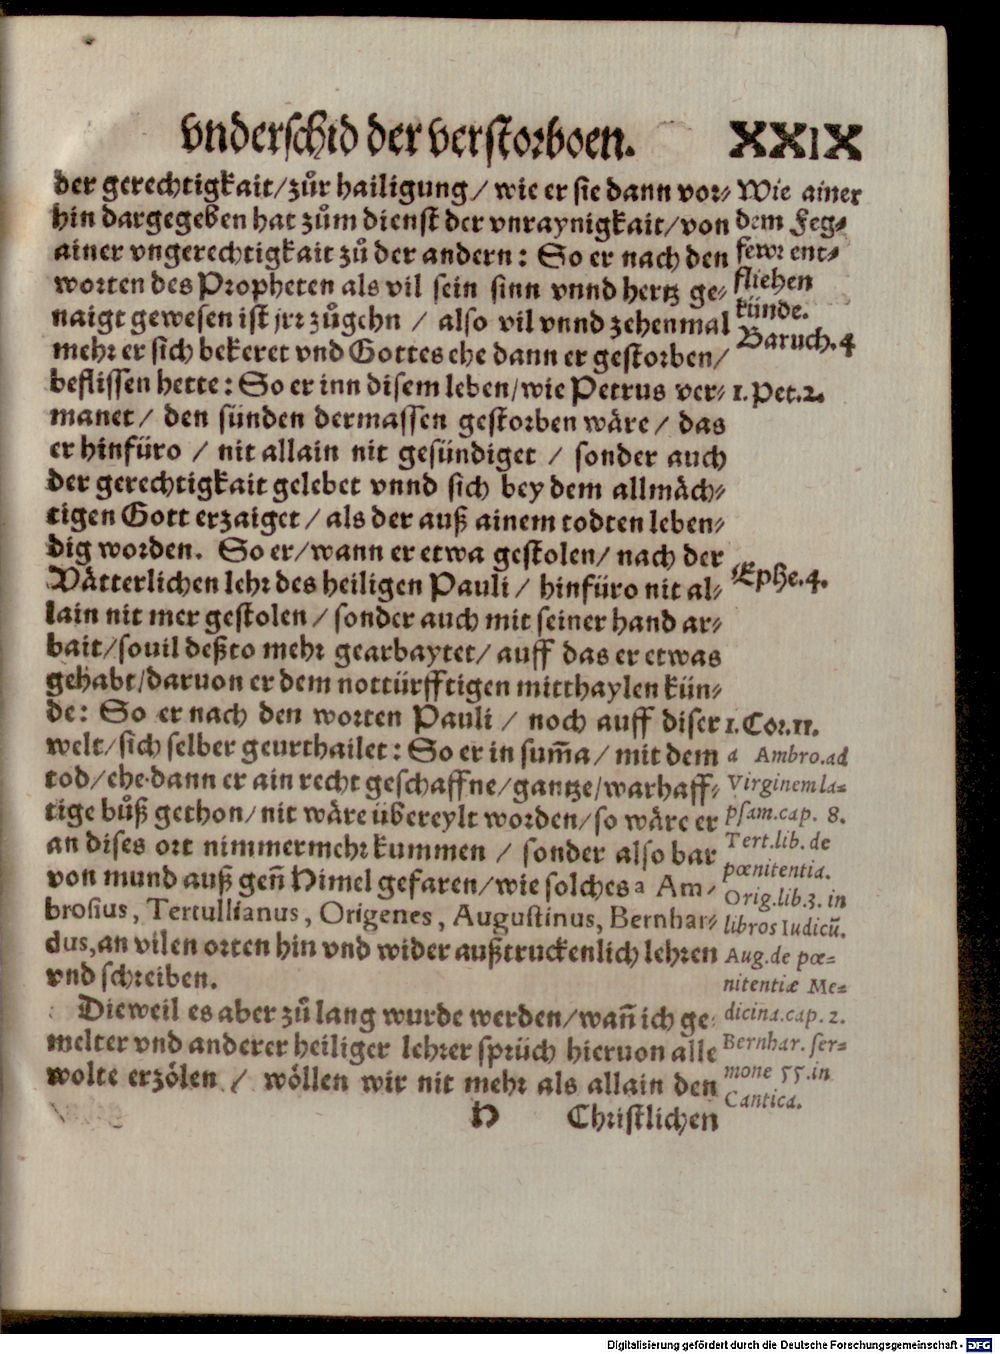 vnderschid der verstorboen. XXIX
der gerechtigkait/zůr hailigung/ wie er sie dann vor-
hin dargegeben hat zům dienst der vnraynigkait/von
ainer vngerechtigkait zů der andern: So er nach den
worten des Propheten als vil sein sinn vnnd hertz ge-
naigt gewesen ist jrr zůgehn / also vil vnnd zehenmal
mehr er sich bekeret vnd Gottes ehe dann er gestorben/
beflissen hette: So er inn disem leben/wie Petrus ver-
manet/ den sünden dermassen gestorben wäre/ das
er hinfüro / nit allain nit gesündiget / sonder auch
der gerechtigkait gelebet vnnd sich bey dem allmäch-
tigen Gott erzaiget/ als der auß ainem todten leben-
dig worden. So er/wann er etwa gestolen/ nach der
Vätterlichen lehr des heiligen Pauli/ hinfüro nit al-
lain nit mer gestolen/ sonder auch mit seiner hand ar-
bait/souil deßto mehr gearbaytet/ auff das er etwas
gehabt/daruon er dem nottürfftigen mitthaylen kün-
de: So er nach den worten Pauli / noch auff diser
welt/sich selber geurthailet: So er in sum̄a/ mit dem
tod/ehe dann er ain recht geschaffne/gantze/warhaff-
tige bůß gethon/nit wäre übereylt worden/so wäre er
an dises ort nimmermehr kummen / sonder also bar
von mund auß gen̄ Himel gefaren/wie solches a Am-
brosius, Tertullianus, Origenes, Augustinus, Bernhar-
dus,an vilen orten hin vnd wider außtruckenlich lehren
vnd schreiben.
Dieweil es aber zů lang wurde werden/wan̄ ich ge-
melter vnd anderer heiliger lehrer sprüch hieruon alle
wolte erzölen / wöllen wir nit mehr als allain den
H Christlichen
Wie ainer
dem Feg-
fewr ent-
fliehen
künde.
Baruch.4
1.Pet.2.
Ephe.4.
1.Cor.11.
a Ambro.ad
Virginem la-
psam.cap. 8.
Tert.lib.de
pœnitentia.
Orig.lib.3. in
libros Iudicū.
Aug.de pœ-
nitentiæ Me-
dicina.cap.2.
Bernhar. ser-
mone 55.in
Cantica.
Digitalisierung gefördert durch die Deutsche Forschungsgemeinschaft - DFG